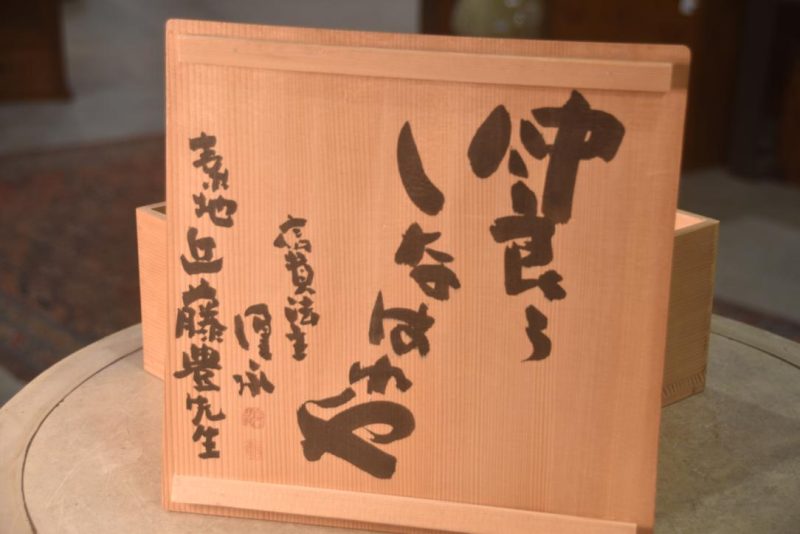 仲良う
しなはれや
信貴法主
素地 近藤豊先生